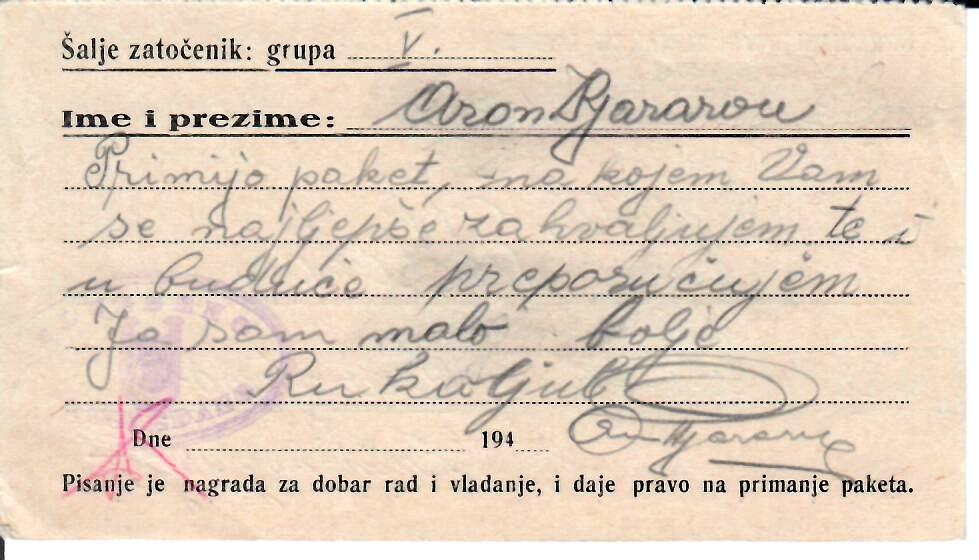 Šalje zatočenik: grupa V.
Ime i prezime: Aron
Primijo paket, na kojem Vam
se najljepše zahvaljujem te i
u buduće preporučujem
Ja sam malo bolje
Rukoljub
Dne 194
Pisanje je nagrada za dobar rad i vladanje, i daje pravo na primanje paketa.